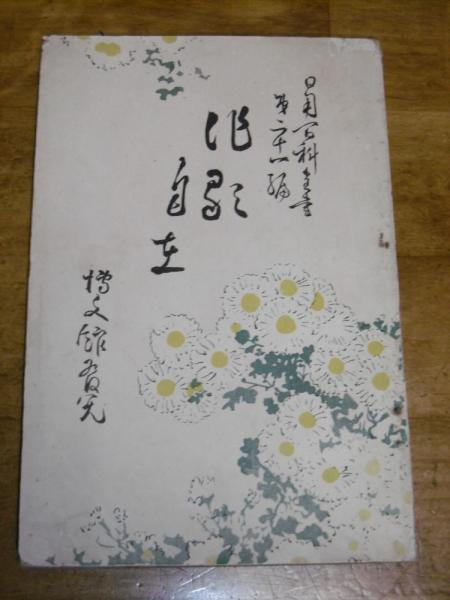 日用百科全書
第二十八編
作歌自在
博文館発兌